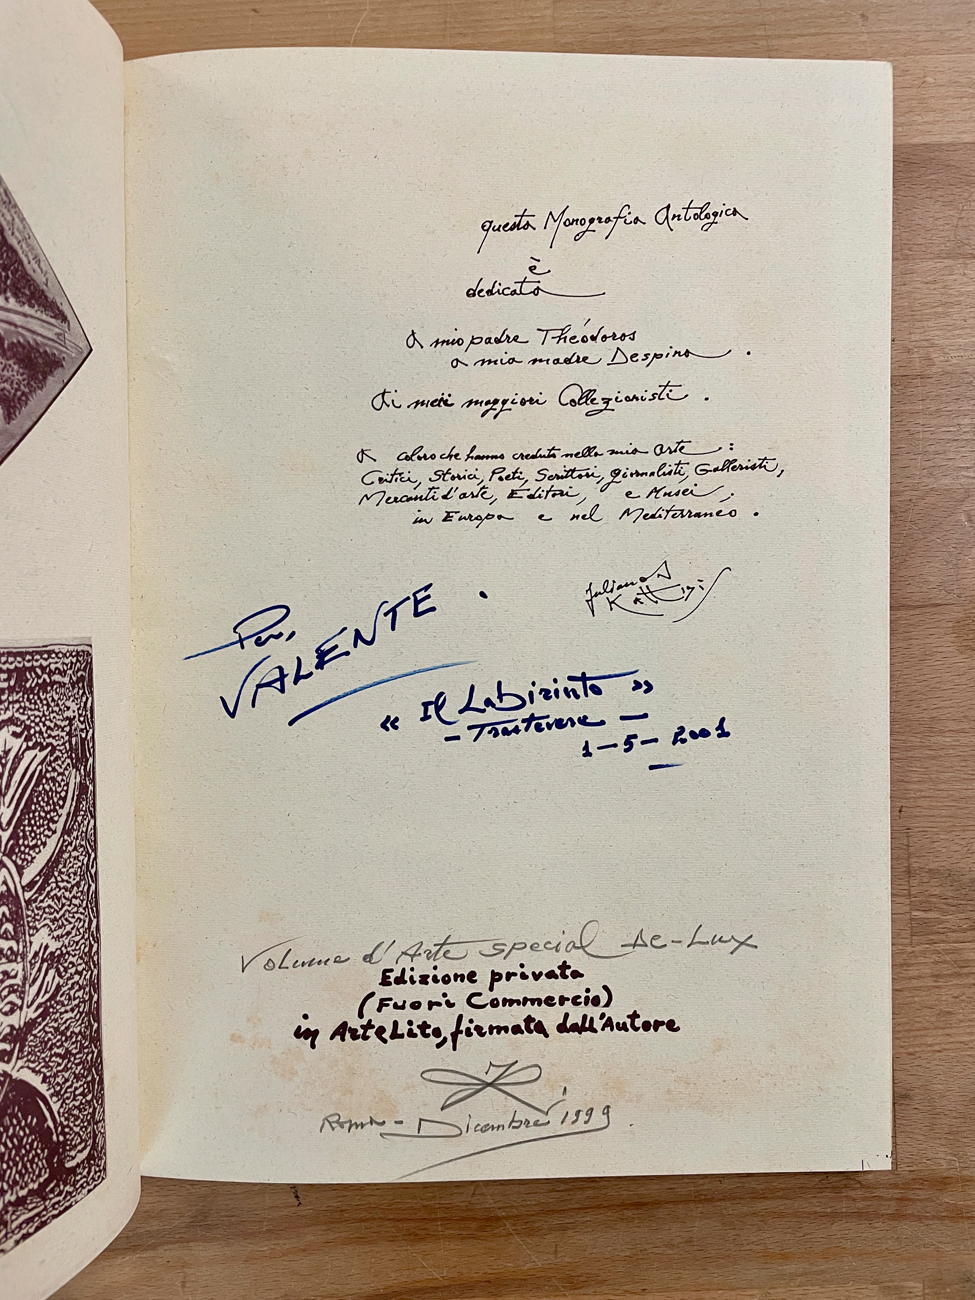 questa Monografia Antologica
è
dedicata
A mio padre Théodoros
a mia madre Despina .
Ai miei maggiori Collezionisti .
A coloro che hanno creduto nella mia arte :
Critici, Storici, Poeti, Scrittori, giornalisti, Galleristi,
Mercanti d'arte, Editori, e Musei,
in Europa e nel Mediterraneo .
Juliano
Per,
VALENTE .
« Il Labirinto »
- Trastevere -
1-5-2001
Volume d'Arte special De-Lux
Edizione privata
(Fuori Commercio)
in ArteLito, firmata dall'Autore
Roma - Dicembre 1999